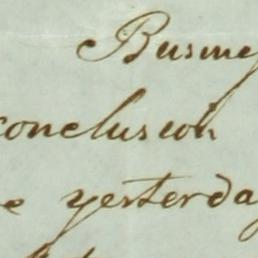 Busine
conclusion
e yesterday